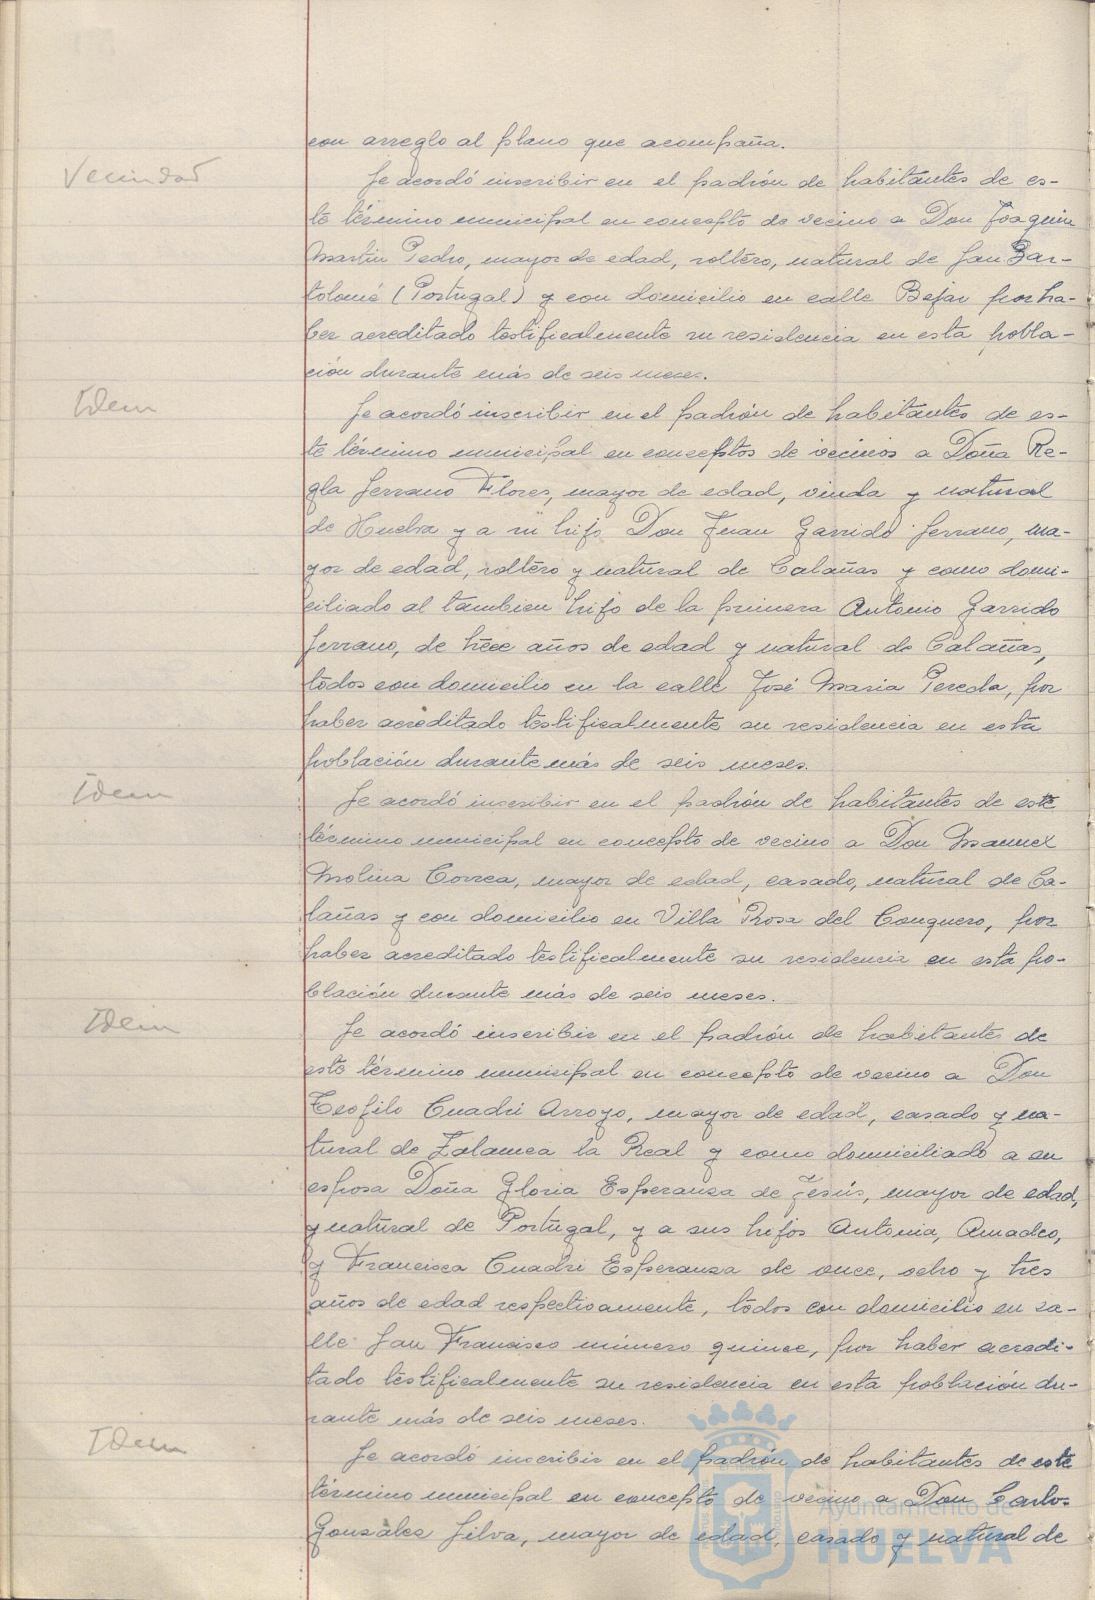 con arreglo al plano que acompaña.
Vecindad
Se acordó inscribir en el padrón de habitantes de es-
te término municipal en concepto de vecino a Don Joaquin
Martin Pedro, mayor de edad, soltero, natural de San Bar-
tolomé (Portugal) y con domicilio en calle Bejar por ha-
ber acreditado testificalmente su residencia en esta pobla-
ción durante más de seis meses.
Idem
Se acordó inscribir en el padrón de habitantes de es-
te término municipal en conceptos de vecinos a Doña Re-
gla Serrano Flores, mayor de edad, viuda y natural
de Huelva y a su hijo Don Juan Garrido Serrano, ma-
yor de edad, soltero y natural de Calañas y como domi-
ciliado al tambien hijo de la primera Antonio Garrido
Serrano, de trece años de edad y natural de Calañas,
todos con domicilio en la calle José Maria Pereda, por
haber acreditado testificalmente su residencia en esta
población durante más de seis meses.
Idem
Se acordó inscribir en el padrón de habitantes de este
término municipal en concepto de vecino a Don Manuel
Molina Correa, mayor de edad, casado, natural de Ca-
lañas y con domicilio en Villa Rosa del Conquero, por
haber acreditado testificalmente su residencia en esta po-
blación durante más de seis meses.
Idem
Se acordó inscribir en el padrón de habitantes de
este término municipal en concepto de vecino a Don
Teofilo Cuadri Arroyo, mayor de edad, casado y na-
tural de Zalamea la Real y como domiciliado a su
esposa Doña Gloria Esperanza de Jesús, mayor de edad,
y natural de Portugal, y a sus hijos Antonia, Amadeo,
y Francisca Cuadri Esperanza de once, ocho y tres
años de edad respectivamente, todos con domicilio en ca-
lle San Francisco número quince, por haber acredi-
tado testificalmente su residencia en esta población du-
rante más de seis meses.
Idem
Se acordó inscribir en el padrón de habitantes de este
término municipal en concepto de vecino a Don Carlos
Gonsales Silva, mayor de edad, casado y natural de
Ayuntamiento de
HUELVA